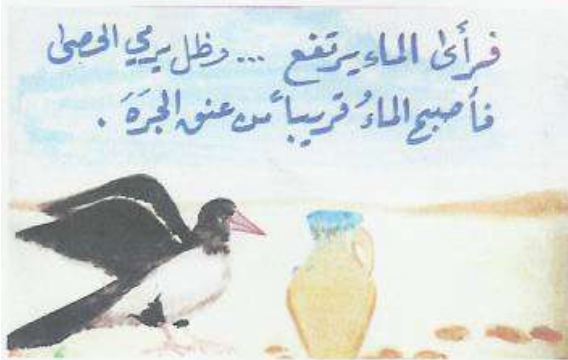 فرأى الماء يرتفع ... وظل يرمي الحصى
فأصبح الماءُ قريباً من عنق الجَرَةَ .